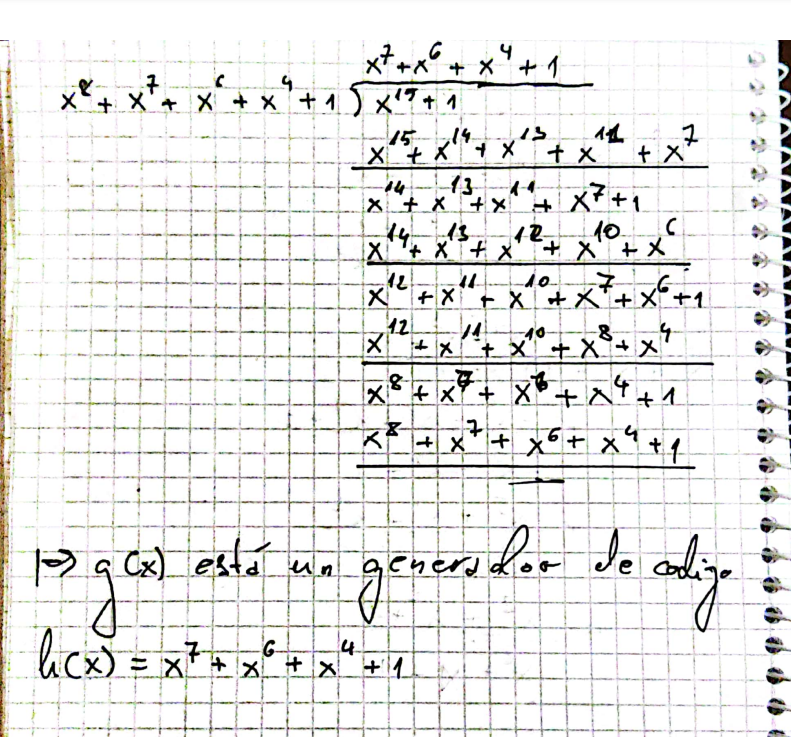 x⁷ + x⁶ + x⁴ + 1
x⁸ + x⁷ + x⁶ + x⁴ + 1 ) x¹⁵ + 1
x¹⁵ + x¹⁴ + x¹³ + x¹¹ + x⁷
x¹⁴ + x¹³ + x¹¹ + x⁷ + 1
x¹⁴ + x¹³ + x¹² + x¹⁰ + x⁶
x¹² + x¹¹ + x¹⁰ + x⁷ + x⁶ + 1
x¹² + x¹¹ + x¹⁰ + x⁸ + x⁴
x⁸ + x⁷ + x⁶ + x⁴ + 1
x⁸ + x⁷ + x⁶ + x⁴ + 1
|=> g(x) está un generador de codigo
h(x) = x⁷ + x⁶ + x⁴ + 1